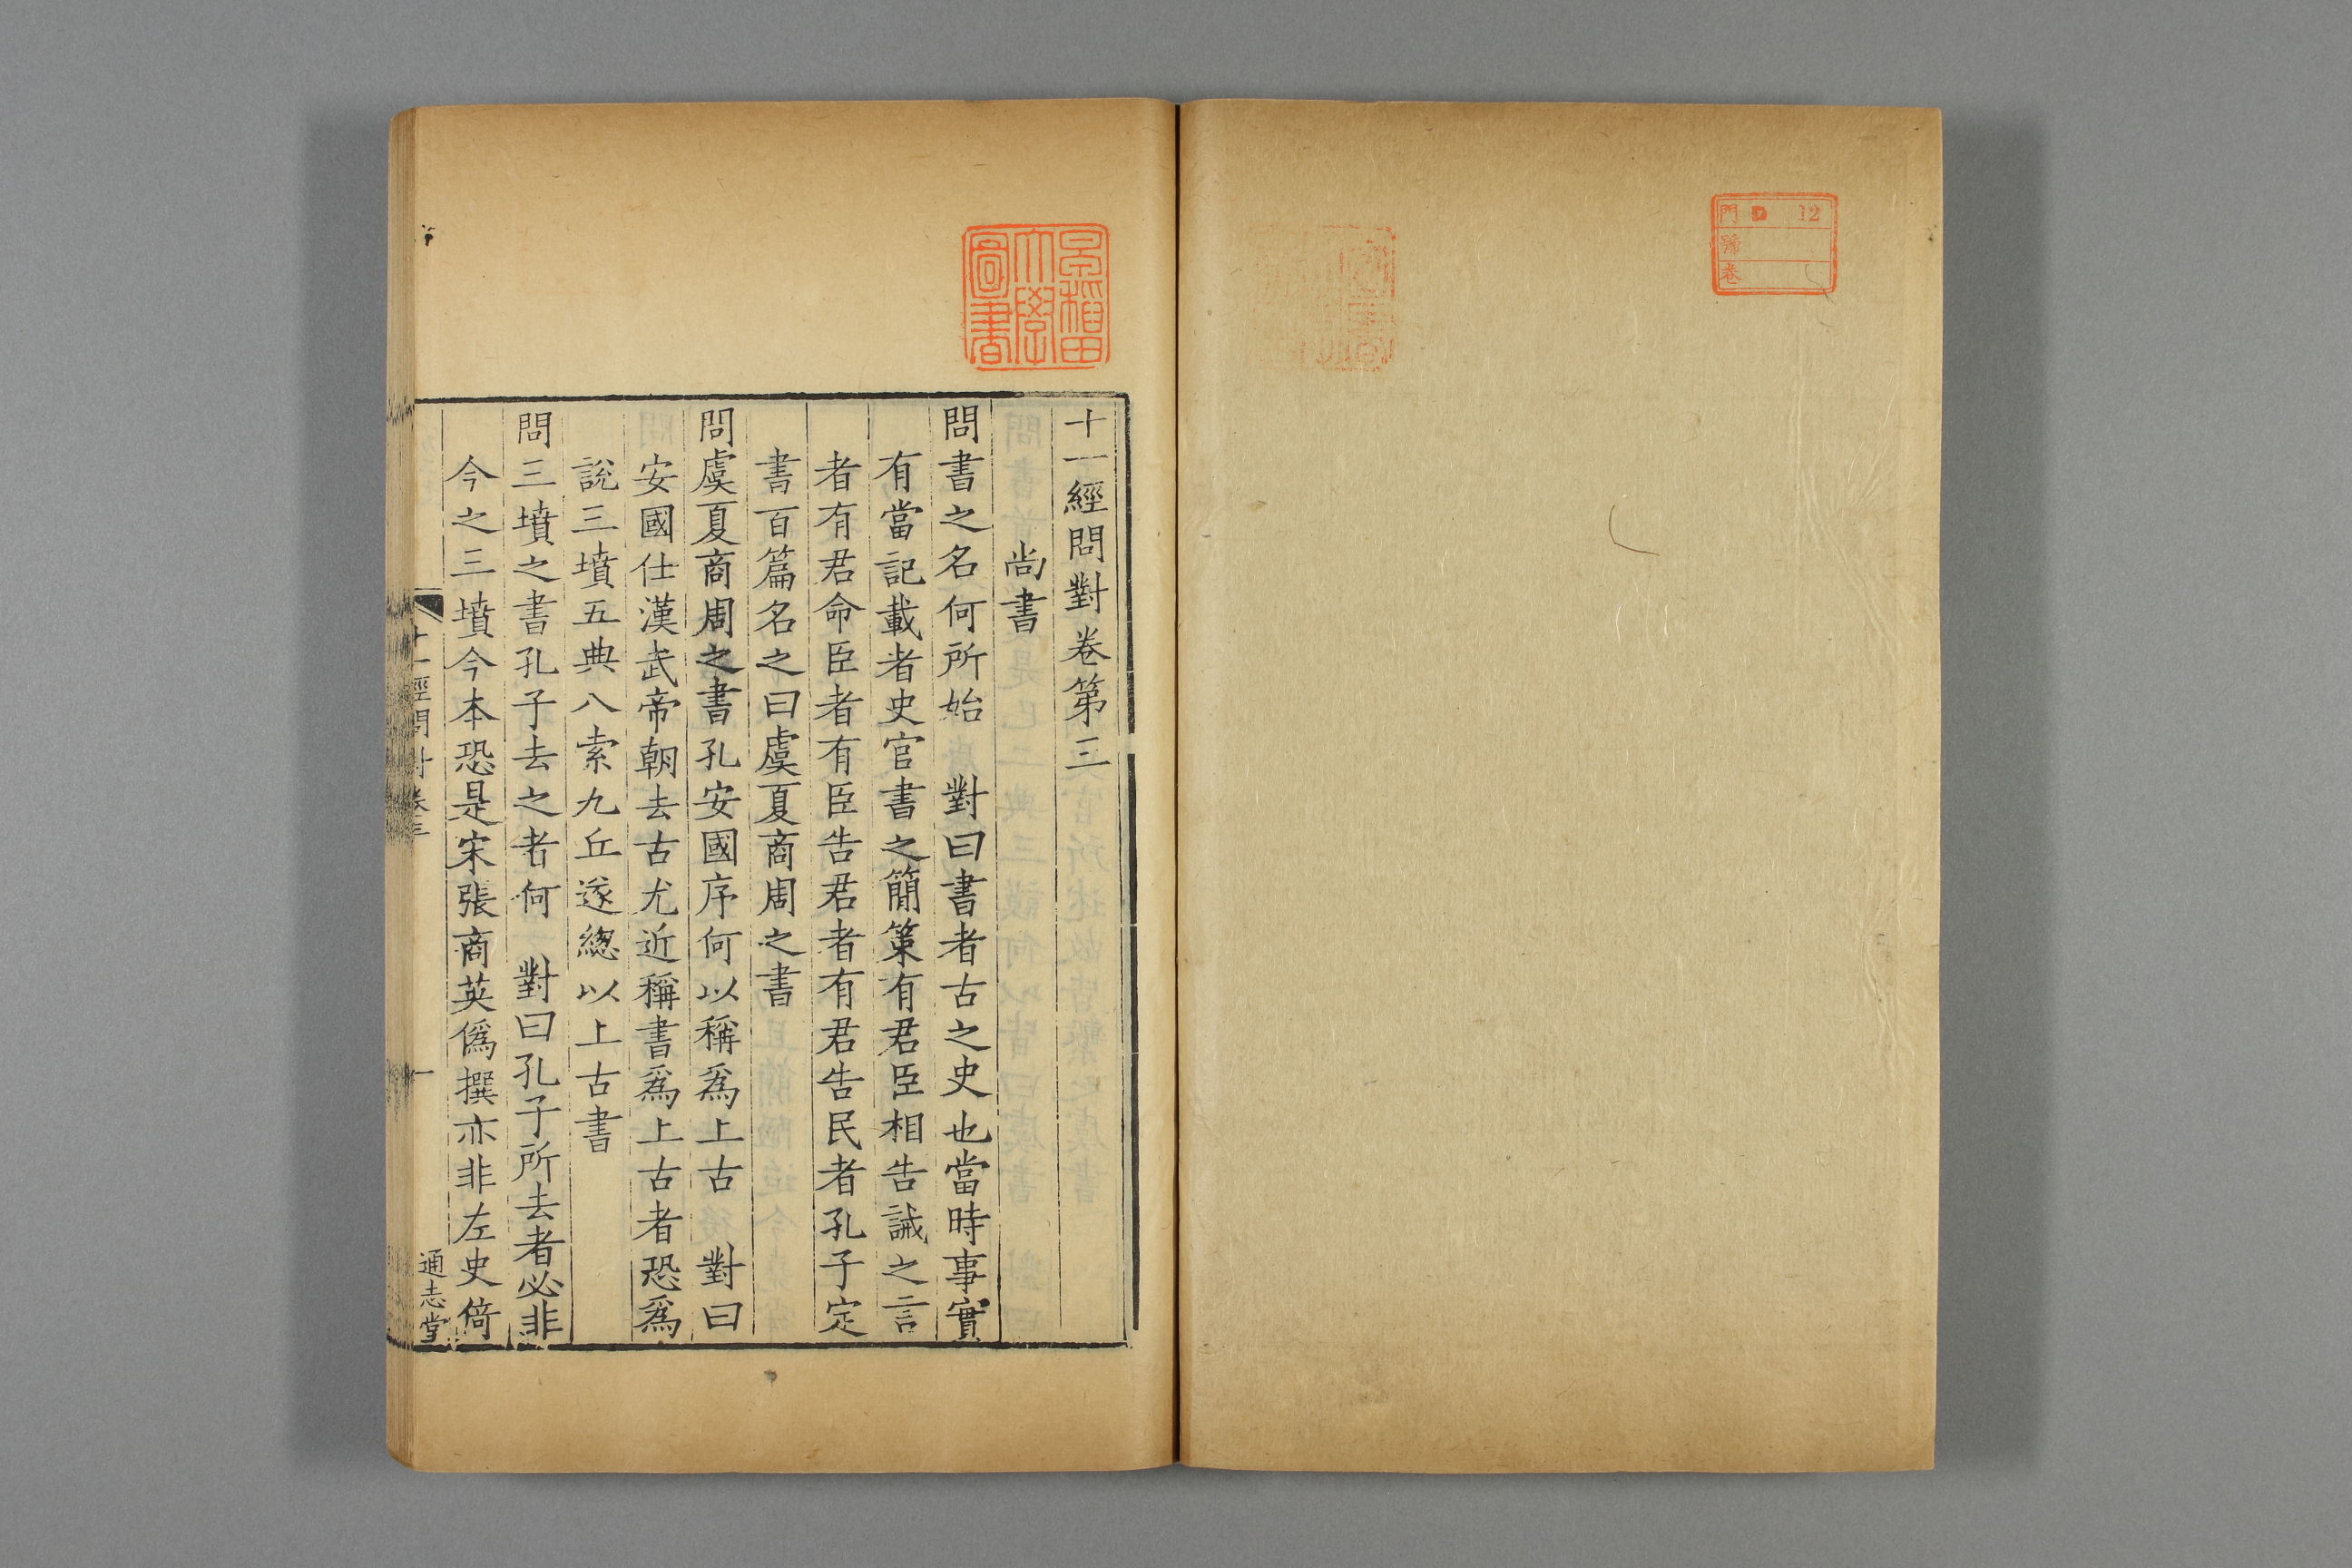 門 D 12
號
卷
早稲田
大學
圖書
十一經問對卷第三
尚書
問書之名何所始 對曰書者古之史也當時事實
有當記載者史官書之簡策有君臣相告誡之言
者有君命臣者有臣告君者有君告民者孔子定
書百篇名之曰虞夏商周之書
問虞夏商周之書孔安國序何以稱爲上古 對曰
安國仕漢武帝朝去古尤近稱書爲上古者恐爲
說三墳五典八索九丘遂緫以上古書
問三墳之書孔子去之者何 對曰孔子所去者必非
今之三墳今本恐是宋張商英僞撰亦非左史倚
十一經問對卷三
一
通志堂